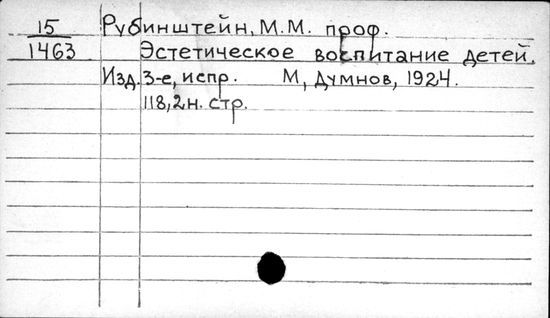 15 Рубинштейн, М.М. проф.
1463 Эстетическое воспитание детей.
Изд. 3-е, испр. М, Думнов, 1924.
118, 2н. стр.